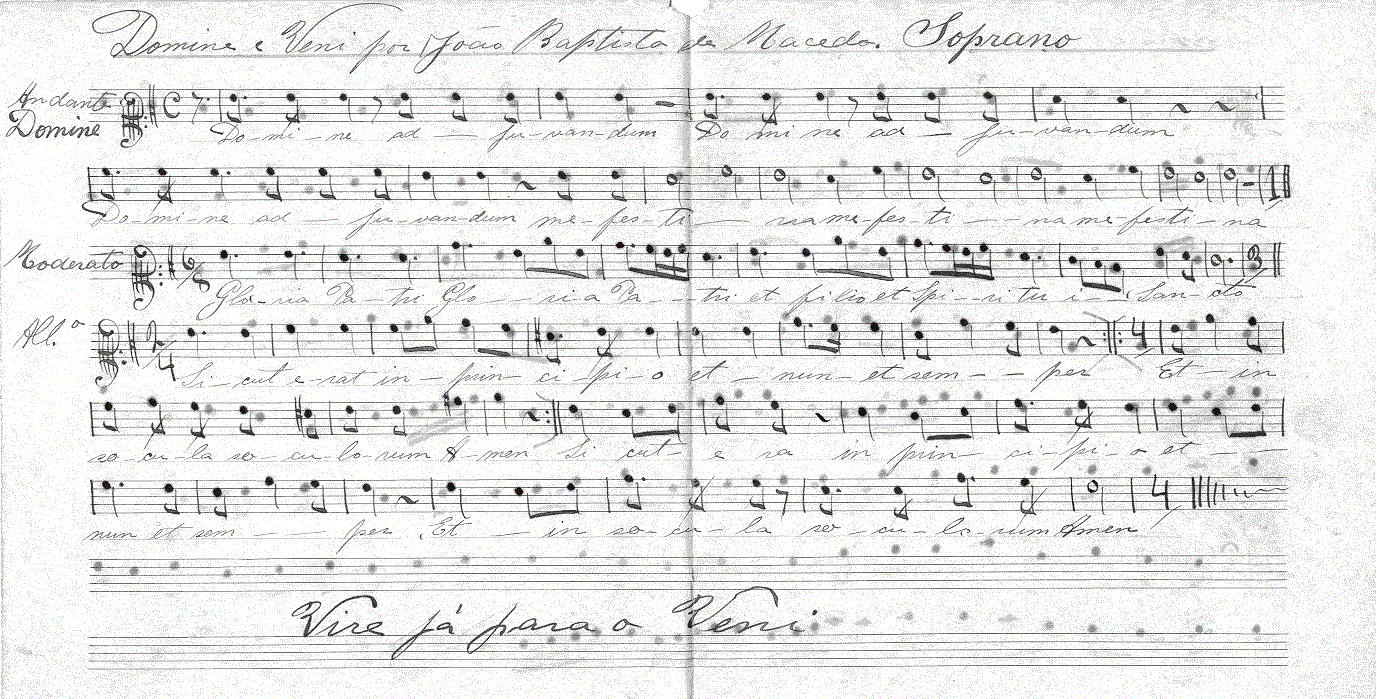 Domine e Veni por João Baptista de Macedo. Soprano
Andante
Domine
Do-mi-ne ad — ju-van-dum Do mi ne ad — ju-van-dum
Do-mi-ne ad — ju-van-dum me-fes-ti — na me-fes-ti - - na me-festi-na
Moderato
Glo-ria Pa-tri Glo - - ri-a Pa - - tri et filio et Spi-ri tu i - - San-cto
All.o
Si-cut e-rat in - prin ci-pi-o et - nun-et sem - - per Et - in
so-cu-la so-cu-lo-rum A-men Si cut- e ra in prin ci-pi-o et - -
nun et sem - - per Et - in so-cu-la so-cu-lo-rum Amen
Vire já para o Veni